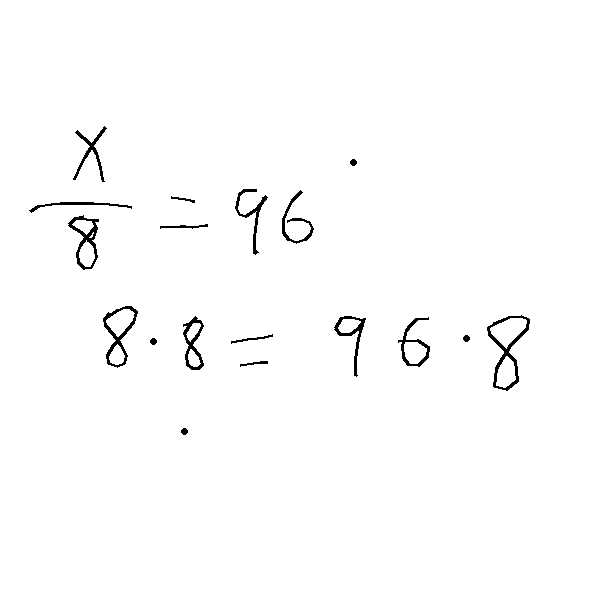 x/8 = 96
8·8 = 96·8